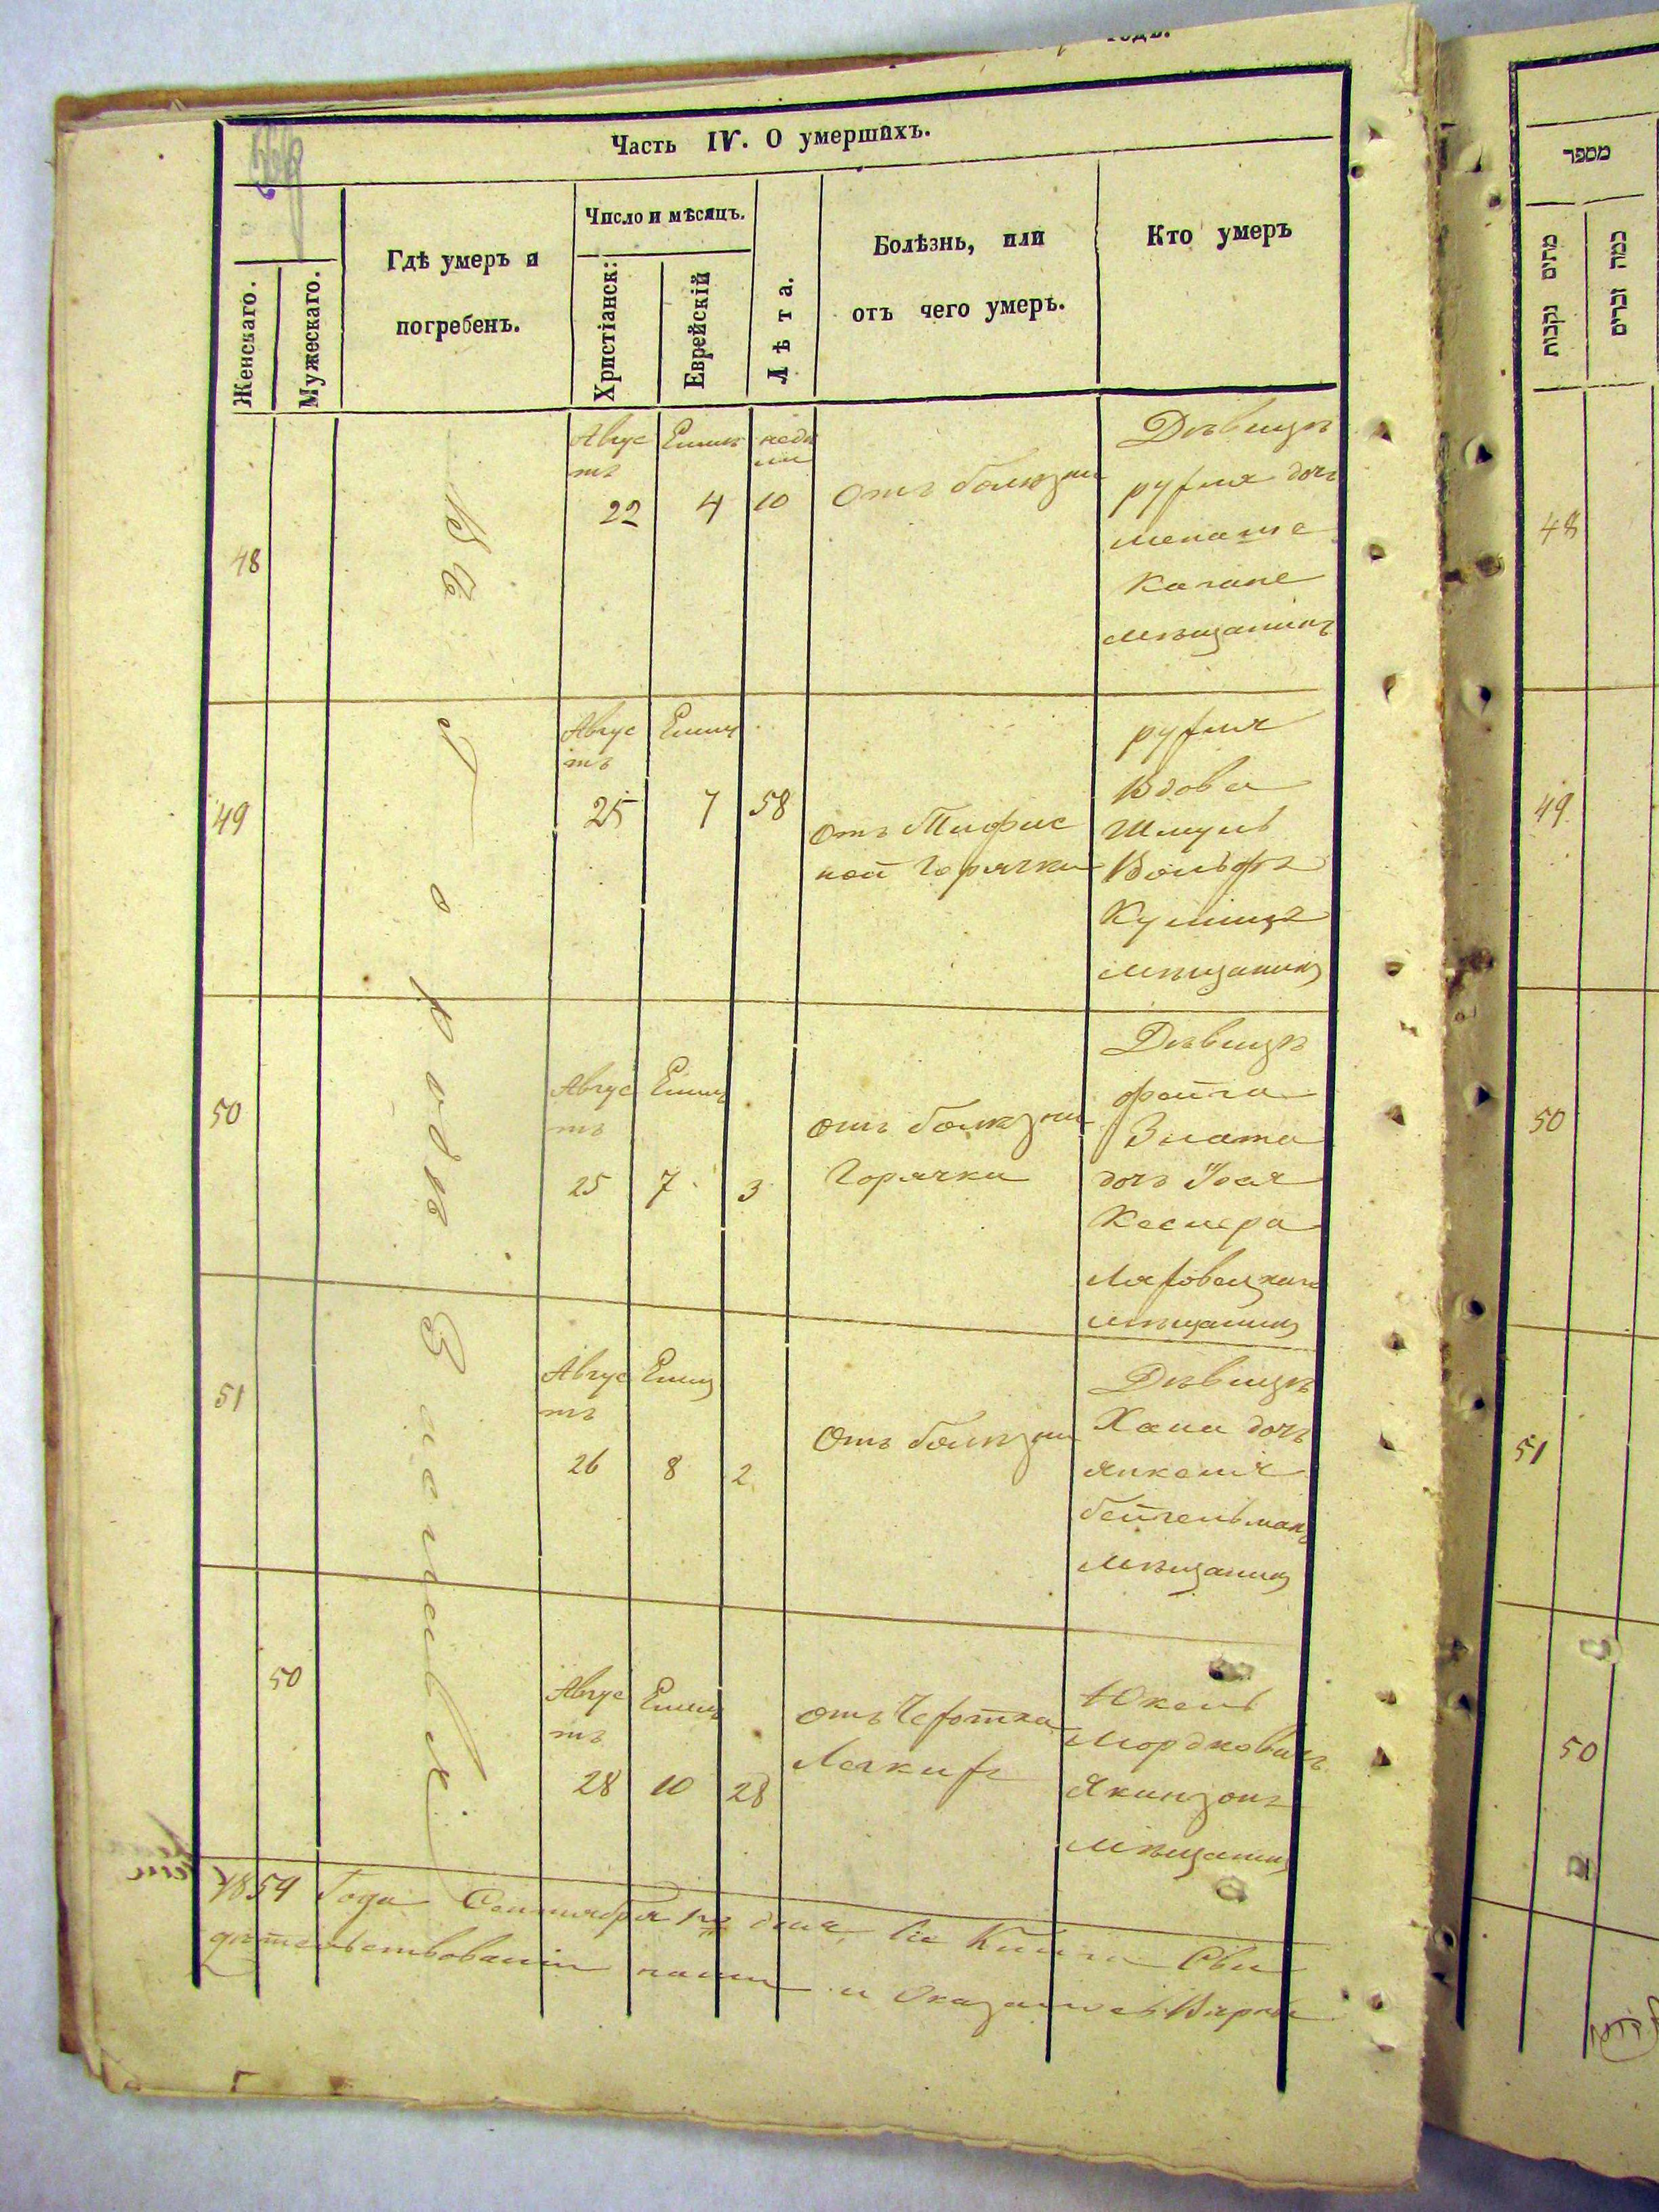 годъ.
Часть IV. О умершихъ.
Женскаго.
Мужескаго.
Гдѣ умеръ и
погребенъ.
Число и мѣсяцъ.
Христіанск:
Еврейскій
Лѣта.
Болѣзнь, или
отъ чего умеръ.
Кто умеръ
Въ городѣ
48
Авгус
тъ
22
Елиль
4
неде
ли
10
Отъ болезни
Дѣвица
рухля дочь
менаше
Кагане
мѣщанинъ
49
Авгус
тъ
25
Елиль
7
58
Отъ Тифус
ной горячки
рухля
Вдова
Шмуль
Вольфъ
мѣщанинъ
50
Авгус
тъ
25
Елиль
7
3
отъ болезни
Горячки
Дѣвица
фейга
Злата
дочь
мѣщанинъ
51
Авгус
тъ
26
Елиль
8
2
Отъ болезни
Дѣвица
Хана дочь
янкеля
бейгельманъ
мѣщанинъ
50
Авгус
тъ
28
Елиль
10
28
отъ Чехотка
Легкихъ
Юкель
Мордковичъ
мѣщанинъ
1854 Года Сентября дня, Сіе Книга Сви
дѣтельствованіи нами и Оказалось Вѣрны
מספר
מתים נקבות
כמה זכרים
48
49
50
51
50